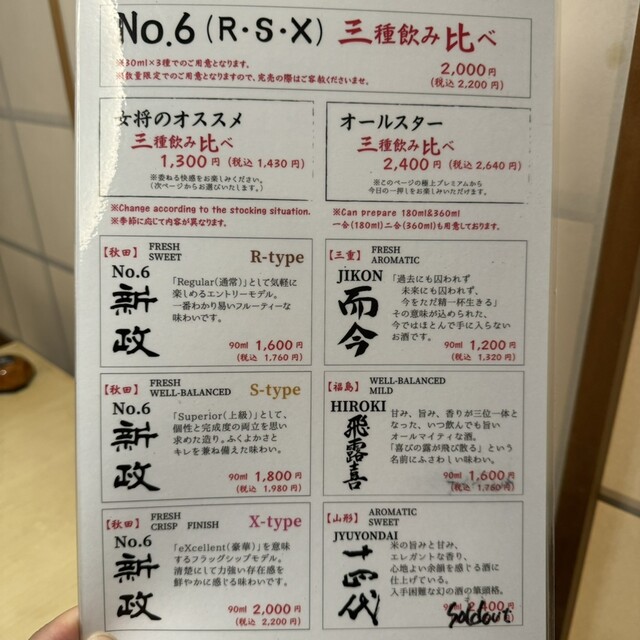 No.6 (R・S・X) 三種飲み比べ
※30ml×3種でのご用意となります。
※数量限定でのご用意となりますので、完売の際はご容赦くださいませ。
2,000円
(税込 2,200円)
女将のオススメ
三種飲み比べ
1,300円 (税込 1,430円)
※委ねる快感をお楽しみください。
(次ページからお選びいたします。)
オールスター
三種飲み比べ
2,400円 (税込 2,640円)
※このページの極上プレミアムから
今日の一押しをお楽しみいただけます。
※Change according to the stocking situation.
※季節に応じて内容が異なります。
※Can prepare 180ml&360ml
一合(180ml)二合(360ml)も用意しております。
【秋田】 FRESH
SWEET
R-type
No.6
新政
「Regular(通常)」として気軽に
楽しめるエントリーモデル。
一番わかり易いフルーティーな
味わいです。
90ml 1,600円
(税込 1,760円)
【三重】 FRESH
AROMATIC
JIKON
而今
「過去にも囚われず
未来にも囚われず、
今をただ精一杯生きる」
その意味が込められた、
今ではほとんど手に入らない
お酒です。
90ml 1,200円
(税込 1,320円)
【秋田】 FRESH
WELL-BALANCED
S-type
No.6
新政
「Superior(上級)」として、
個性と完成度の両立を思い
求めた造り。ふくよかさと
キレを兼ね備えた味わい。
90ml 1,800円
(税込 1,980円)
【福島】 WELL-BALANCED
MILD
HIROKI
飛露喜
甘み、旨み、香りが三位一体と
なった、いつ飲んでも旨い
オールマイティな酒。
「喜びの露が飛び散る」という
名前にふさわしい味わい。
90ml 1,600円
(税込 1,760円)
【秋田】 FRESH
CRISP FINISH
X-type
No.6
新政
「eXcellent(豪華)」を意味
するフラッグシップモデル。
清楚にして力強い存在感を
鮮やかに感じる味わいです。
90ml 2,000円
(税込 2,200円)
【山形】 AROMATIC
SWEET
JYUYONDAI
十四代
米の旨みと甘み、
エレガントな香り、
心地よい余韻を感じる酒に
仕上げている。
入手困難な幻の酒の筆頭格。
90ml
Soldout